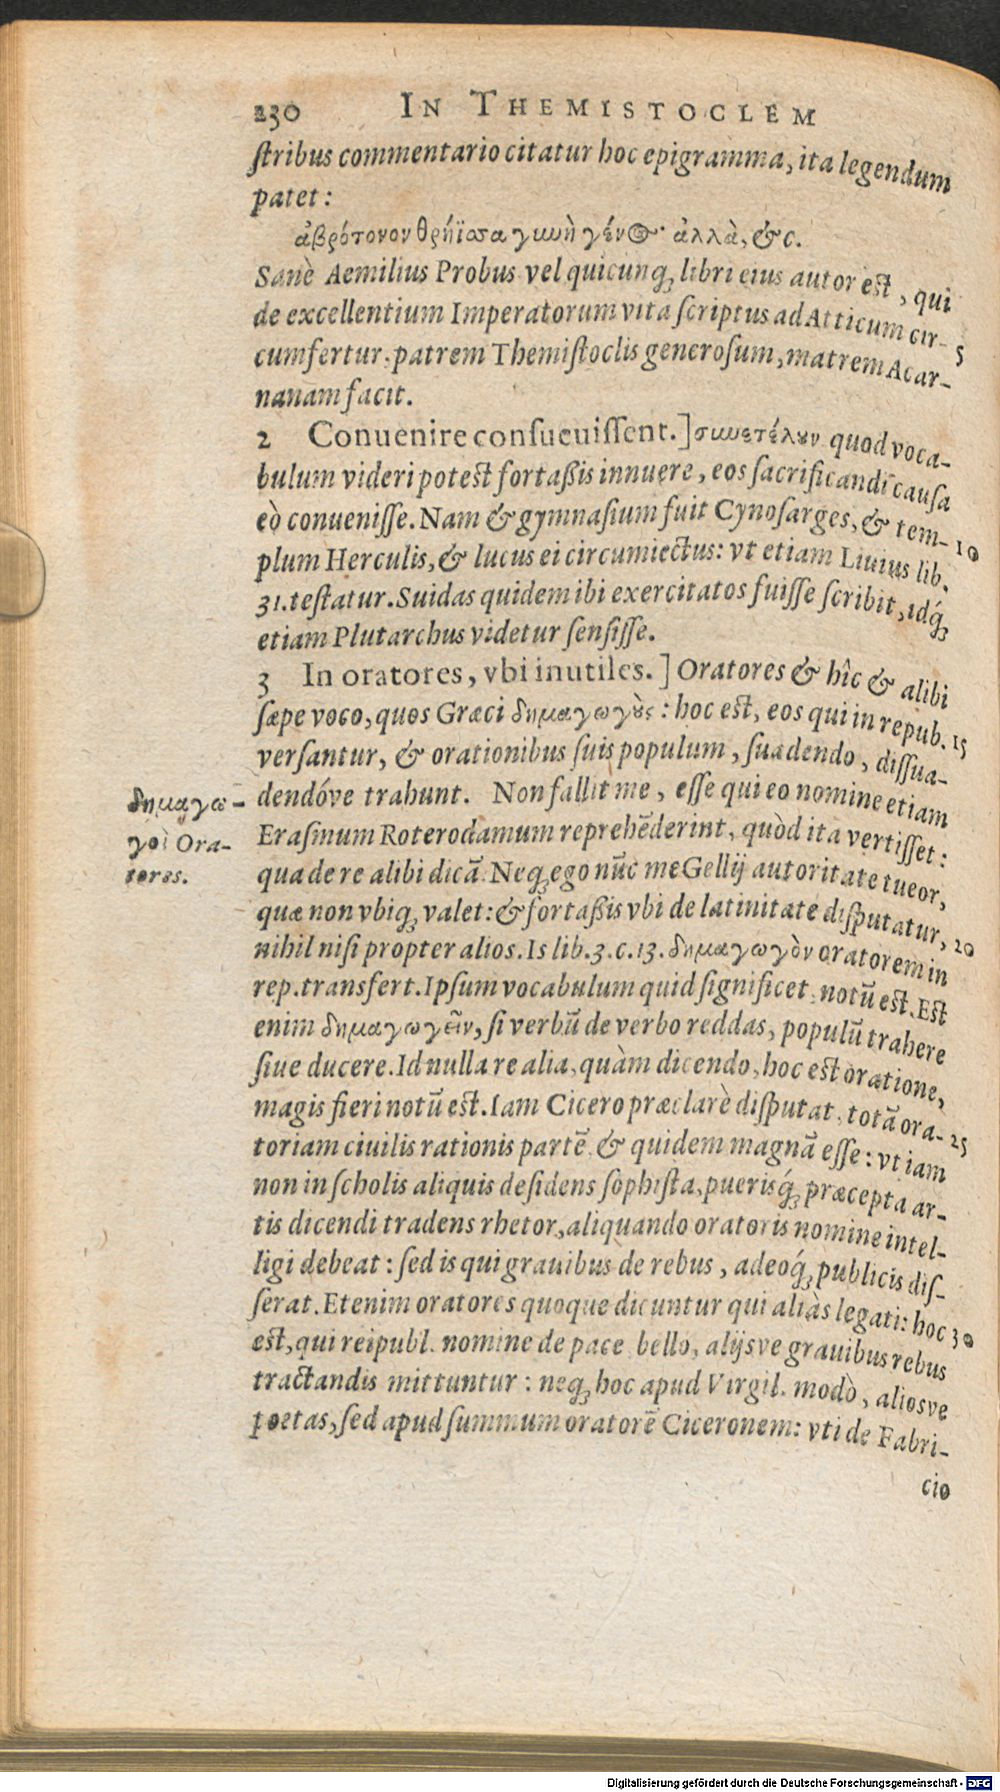 230 IN THEMISTOCLEM
stribus commentario citatur hoc epigramma, ita legendum
patet:
ἀβρότονον θρήϊσσα γυνὴ γένος· ἀλλὰ, &c.
Sanè Aemilius Probus vel quicunq; libri eius autor est, qui
de excellentium Imperatorum vita scriptus ad Atticum cir-
cumfertur, patrem Themistoclis generosum, matrem Acar- 5
nanam facit.
2 Conuenire consueuissent.] συνετέλουν quod voca-
bulum videri potest fortaßis innuere, eos sacrificandi causa
eò conuenisse. Nam & gymnasium fuit Cynosarges, & tem- 10
plum Herculis, & lucus ei circumiectus: vt etiam Liuius lib.
31. testatur. Suidas quidem ibi exercitatos fuisse scribit, idq́;
etiam Plutarchus videtur sensisse.
3 In oratores, vbi inutiles.] Oratores & hîc & alibi
sæpe voco, quos Græci δημαγωγοὺς: hoc est, eos qui in repub. 15
versantur, & orationibus suis populum, suadendo, dissua-
δημαγω- dendóve trahunt. Non fallit me, esse qui eo nomine etiam
γοὶ Ora- Erasmum Roterodamum reprehēderint, quòd ita vertisset:
tores. qua de re alibi dicā. Neq; ego nūc me Gellij autoritate tueor,
quæ non vbiq; valet: & fortaßis vbi de latinitate disputatur, 20
nihil nisi propter alios. Is lib. 3. c. 13. δημαγωγὸν oratorem in
rep. transfert. Ipsum vocabulum quid significet, notū est. Est
enim δημαγωγεῖν, si verbū de verbo reddas, populū trahere
siue ducere. Id nulla re alia, quàm dicendo, hoc est oratione,
magis fieri notū est. Iam Cicero præclarè disputat, totā ora- 25
toriam ciuilis rationis partē & quidem magnā esse: vt iam
non in scholis aliquis desidens sophista, puerisq́; præcepta ar-
tis dicendi tradens rhetor, aliquando oratoris nomine intel-
ligi debeat: sed is qui grauibus de rebus, adeoq́; publicis dis-
serat. Etenim oratores quoque dicuntur qui aliàs legati: hoc 30
est, qui reipubl. nomine de pace bello, alijsve grauibus rebus
tractandis mittuntur: neq; hoc apud Virgil. modò, aliosve
poetas, sed apud summum oratorē Ciceronem: vti de Fabri-
cio
Digitalisierung gefördert durch die Deutsche Forschungsgemeinschaft - DFG